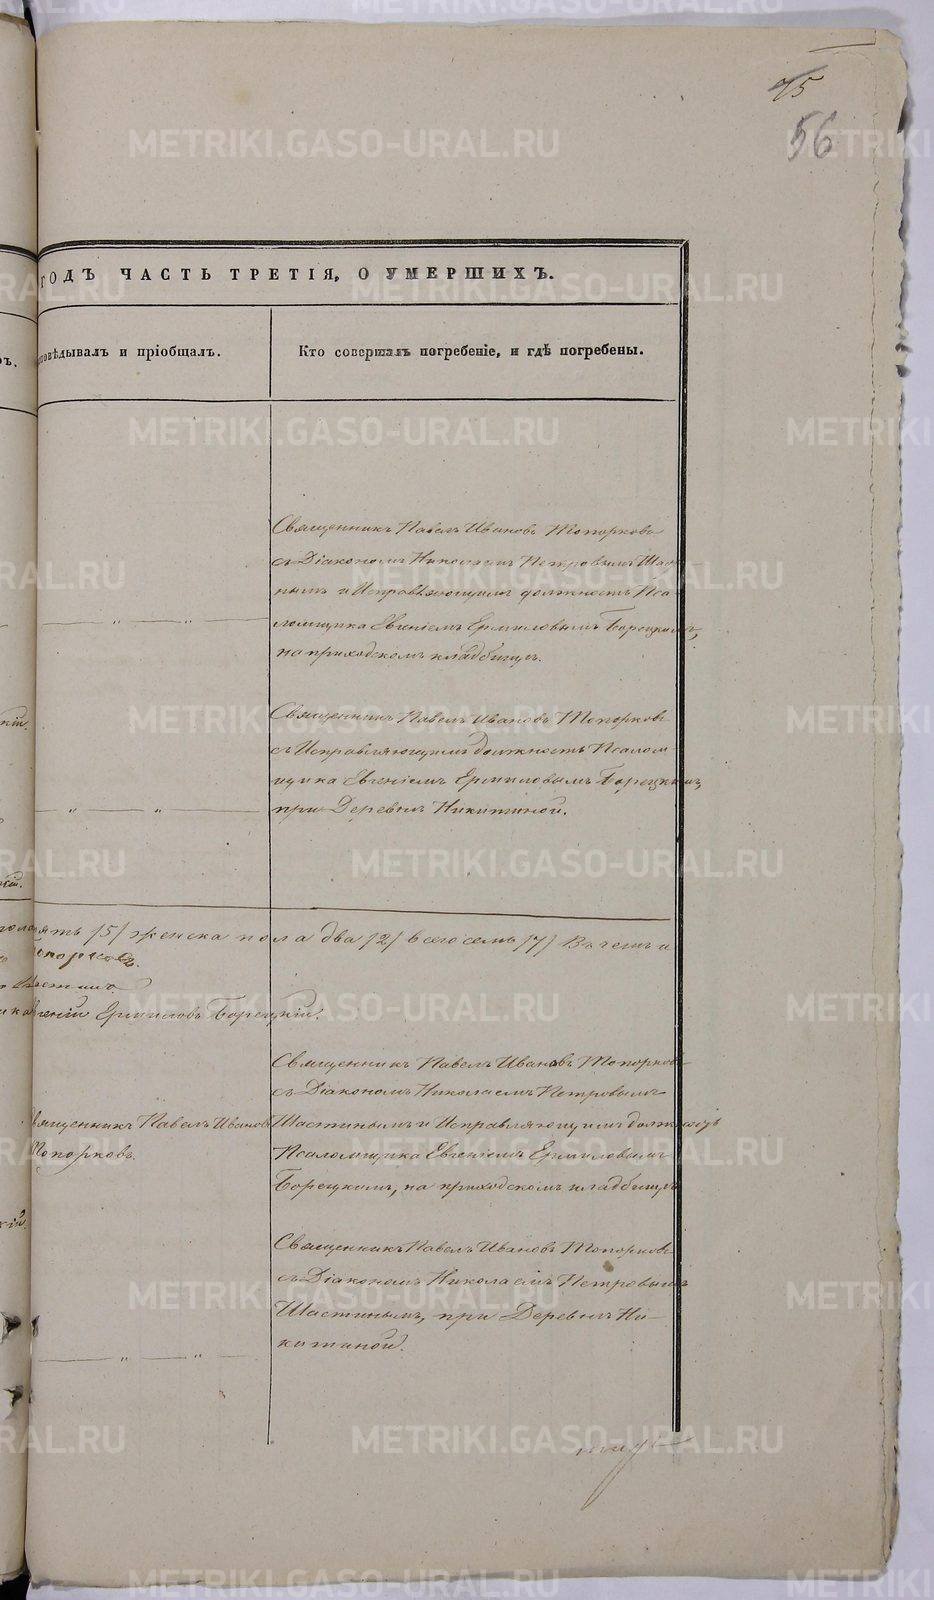 75
56
ГОДЪ ЧАСТЬ ТРЕТІЯ, О УМЕРШИХЪ.
повѣдывалъ и пріобщалъ.
Кто совершалъ погребеніе, и гдѣ погребены.
Священникъ Павелъ Ивановъ Топорковъ
съ Діакономъ Николаемъ Петровымъ Шас-
нымъ и Исправляющимъ должность Пса-
ломщика Евгеніемъ Ермиловымъ Борецкимъ,
на приходскомъ кладбищѣ.
Священникъ Павелъ Ивановъ Топорковъ
съ Исправляющимъ должность Псалом-
щика Евгеніемъ Ермиловымъ Борецкимъ,
при Деревнѣ Никитиной.
пять /5/ женска пола два /2/ всего семь /7/ Въ чемъ и
Топорковъ.
Шастинъ.
Евгеній Ермиловъ Борецкій.
Священникъ Павелъ Ивановъ Топорковъ
съ Діакономъ Николаемъ Петровымъ
Священникъ Павелъ Ивановъ
Шастинымъ и Исправляющимъ должность
Топорковъ.
Псаломщика Евгеніемъ Ермиловымъ
Борецкимъ, на приходскомъ кладбищѣ
Священникъ Павелъ Ивановъ Топорковъ
съ Діакономъ Николаемъ Петровымъ
Шастинымъ, при Деревнѣ Ни-
китиной.
METRIKI.GASO-URAL.RU